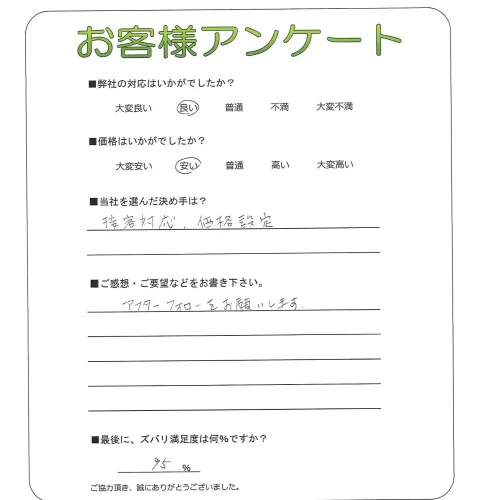 お客様アンケート
■弊社の対応はいかがでしたか？
大変良い 良い 普通 不満 大変不満
■価格はいかがでしたか？
大変安い 安い 普通 高い 大変高い
■当社を選んだ決め手は？
接客対応、価格設定
■ご感想・ご要望などをお書き下さい。
アフターフォローをお願いします。
■最後に、ズバリ満足度は何%ですか？
95 %
ご協力頂き、誠にありがとうございました。